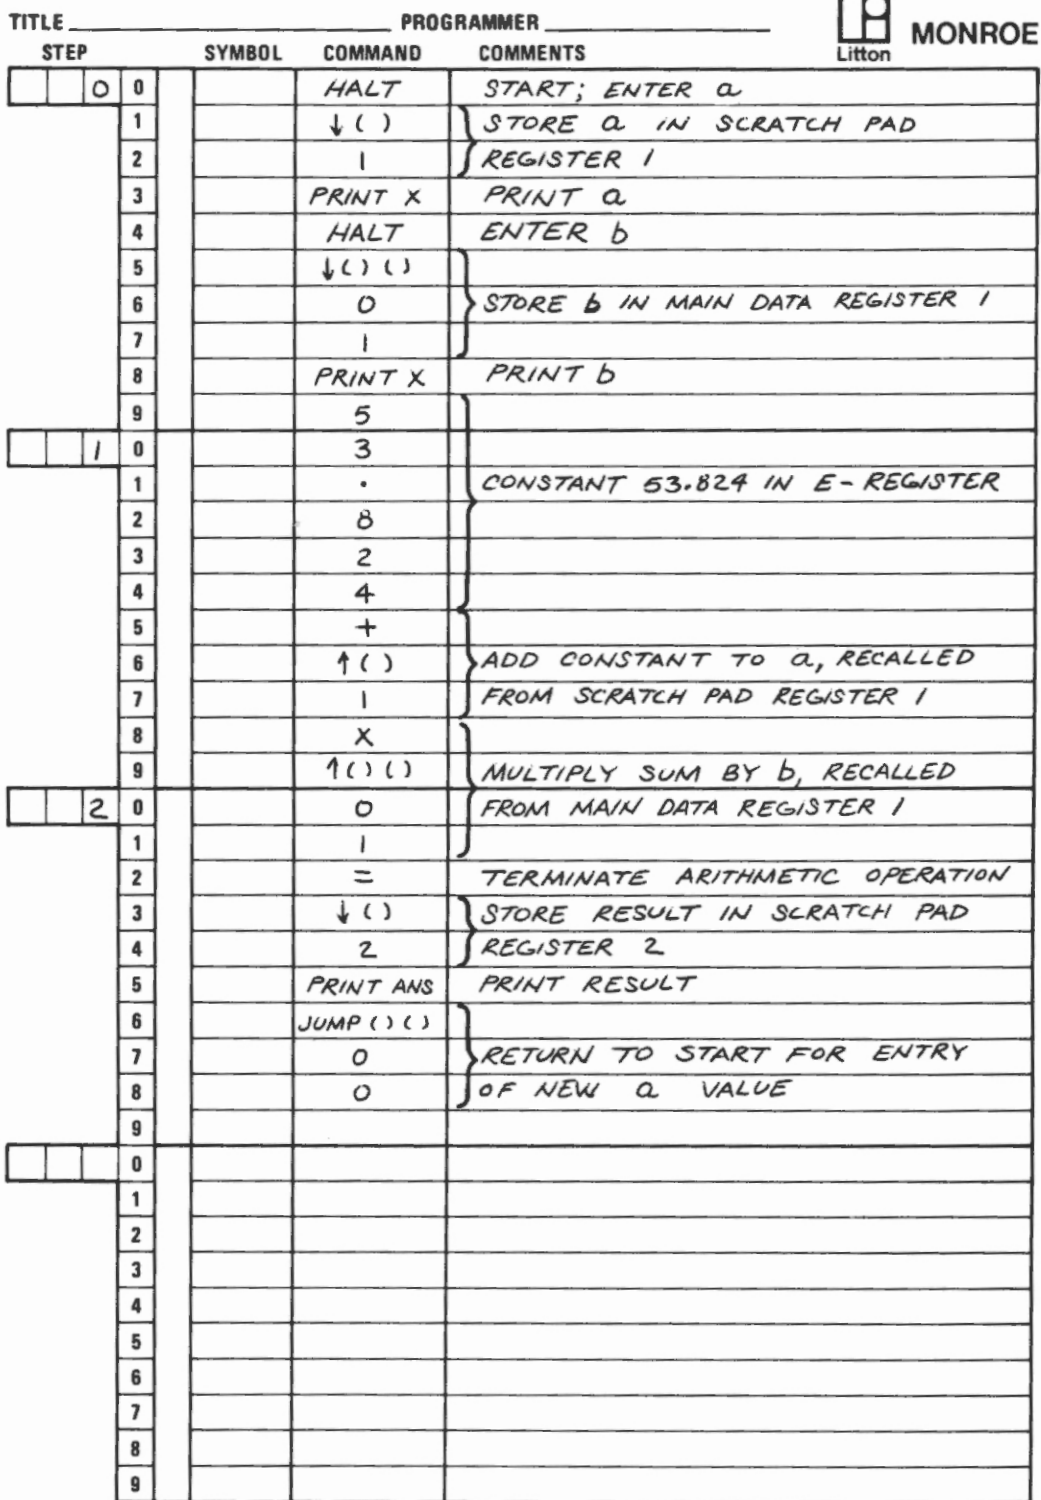 TITLE PROGRAMMER
Litton MONROE
STEP SYMBOL COMMAND COMMENTS
0 0 HALT START; ENTER a
1 ↓ ( ) STORE a IN SCRATCH PAD
2 1 REGISTER 1
3 PRINT X PRINT a
4 HALT ENTER b
5 ↓ ( ) ( )
6 0 STORE b IN MAIN DATA REGISTER 1
7 1
8 PRINT X PRINT b
9 5
1 0 3
1 . CONSTANT 53.824 IN E-REGISTER
2 8
3 2
4 4
5 +
6 ↑ ( ) ADD CONSTANT TO a, RECALLED
7 1 FROM SCRATCH PAD REGISTER 1
8 X
9 ↑ ( ) ( ) MULTIPLY SUM BY b, RECALLED
2 0 0 FROM MAIN DATA REGISTER 1
1 1
2 = TERMINATE ARITHMETIC OPERATION
3 ↓ ( ) STORE RESULT IN SCRATCH PAD
4 2 REGISTER 2
5 PRINT ANS PRINT RESULT
6 JUMP ( ) ( )
7 0 RETURN TO START FOR ENTRY
8 0 OF NEW a VALUE
9
0
1
2
3
4
5
6
7
8
9